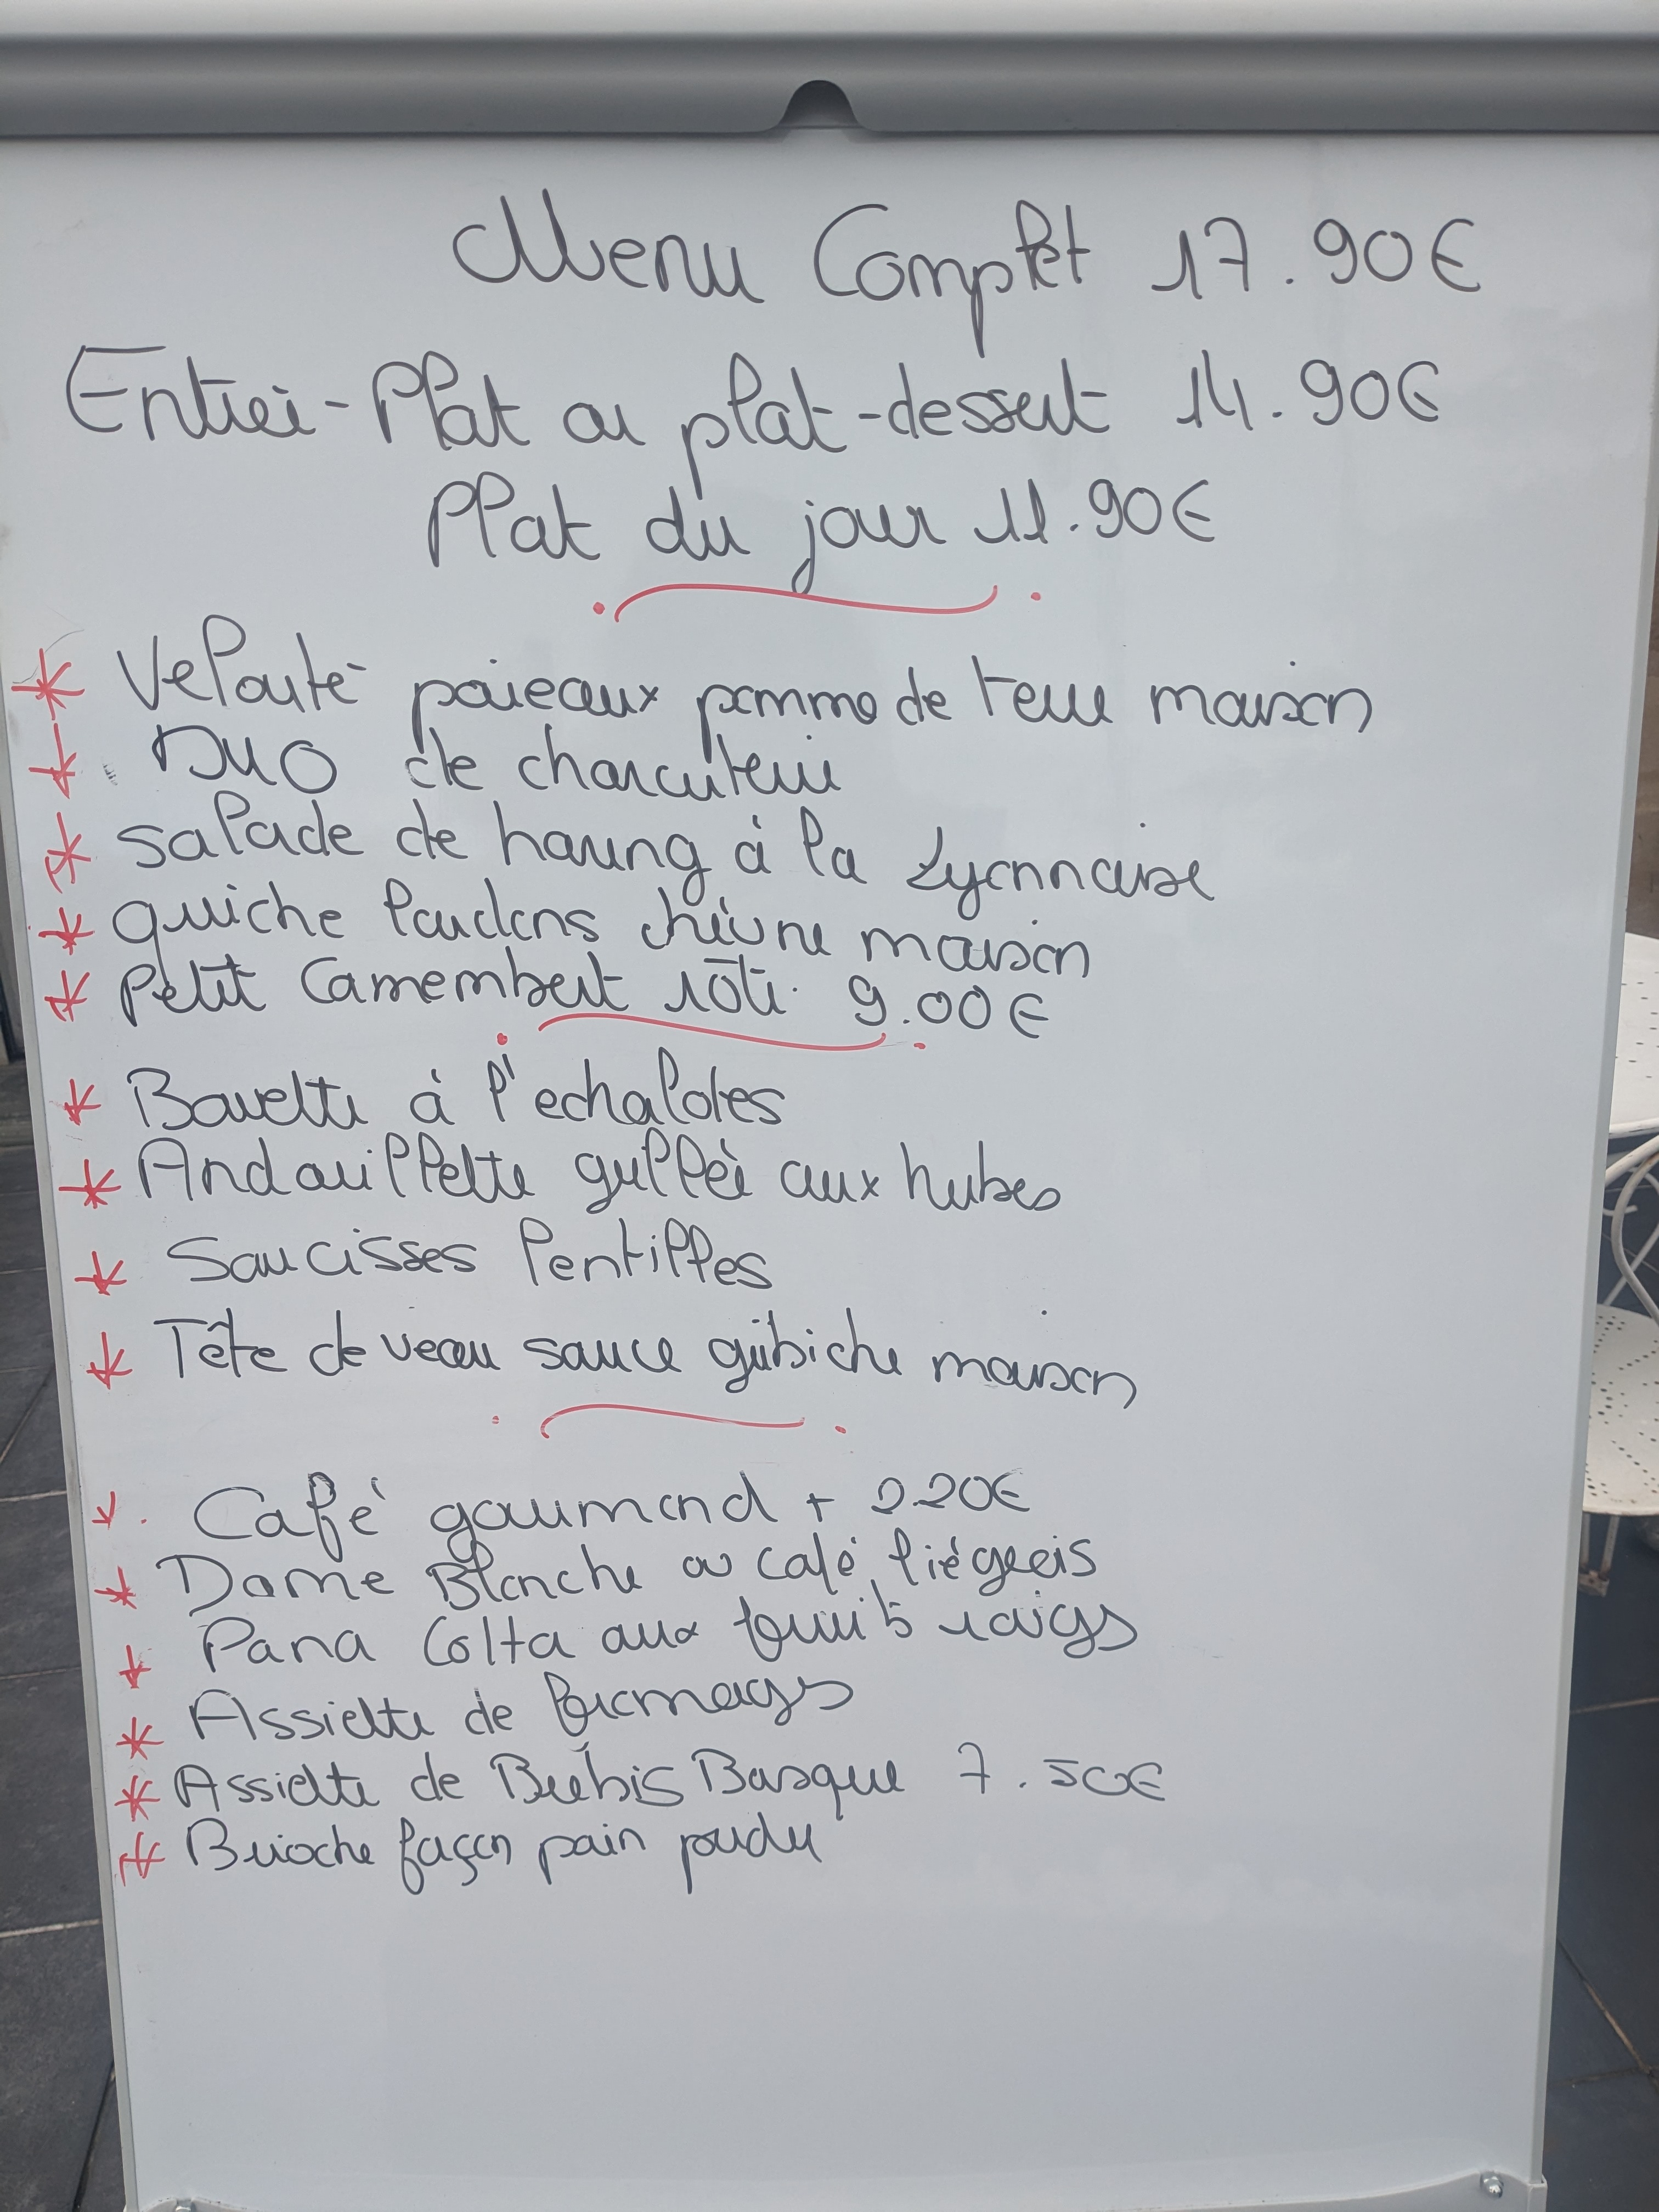 Menu Complet 17.90€
Entrée-Plat ou plat-dessert 14.90€
Plat du jour 11.90€
* Velouté poireaux pomme de terre maison
* Duo de charcuterie
* salade de hareng à la Lyonnaise
* quiche lardons chèvre maison
* Petit Camembert rôti 9.00€
* Bavette à l'echalotes
* Andouillette grillée aux herbes
* Saucisses lentilles
* Tête de veau sauce gribiche maison
* Café gourmand + 2.20€
* Dame Blanche ou café liégeois
* Pana Cotta aux fruits rouges
* Assiette de fromages
* Assiette de Brebis Basque 7.50€
* Brioche façon pain perdu